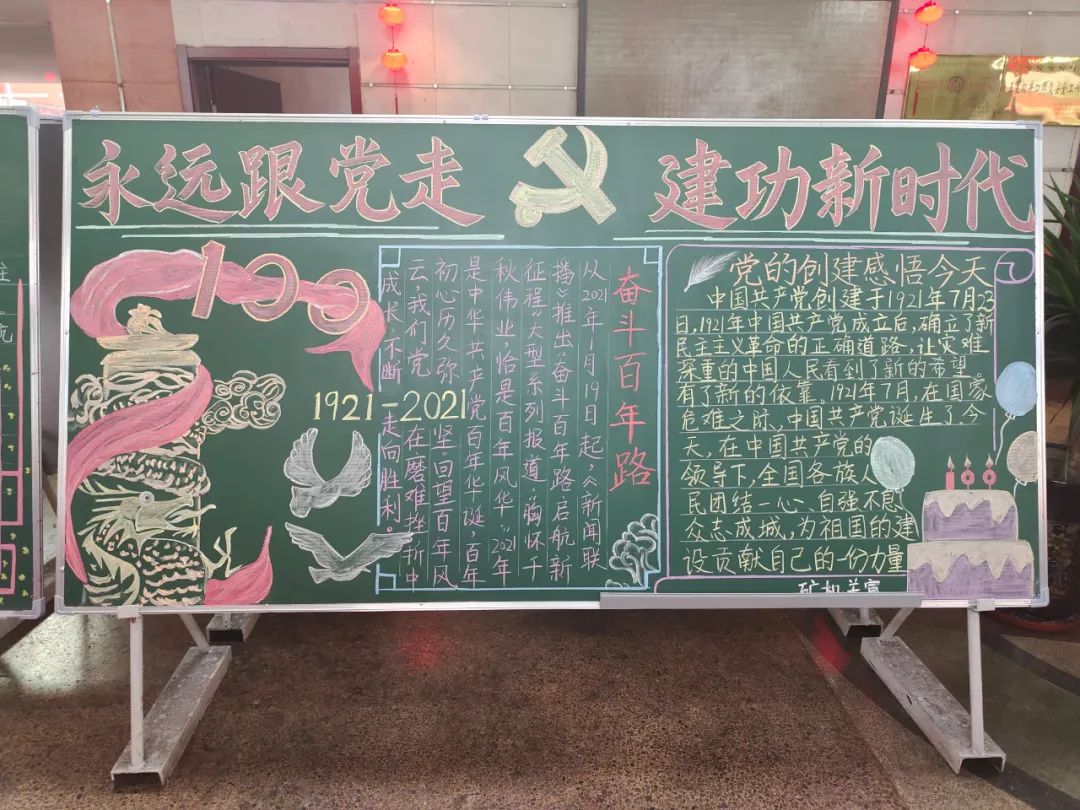 永远跟党走
建功新时代
100
1921-2021
奋斗百年路
从2021年1月19日起,《新闻联
播》推出"奋斗百年路启航新
征程"大型系列报道。"胸怀千
秋伟业,恰是百年风华"2021年
是中华共产党百年华诞,百年
初心历久弥坚。回望百年风
云,我们党在磨难挫折中
成长、不断走向胜利。
党的创建感悟今天
中国共产党创建于1921年7月23
日,1921年中国共产党成立后,确立了新
民主主义革命的正确道路,让灾难
深重的中国人民看到了新的希望。
有了新的依靠。1921年7月,在国家
危难之际,中国共产党诞生了。今
天,在中国共产党的
领导下,全国各族人
民团结一心、自强不息
众志成城,为祖国的建
设贡献自己的一份力量
100